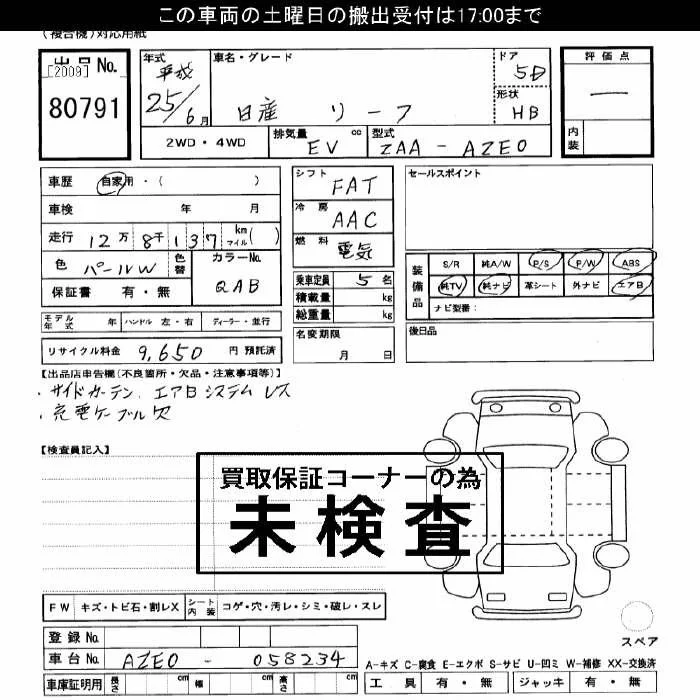 この車両の土曜日の搬出受付は17:00まで
(複合機)対応用紙
出品No.
[2009]
80791
年式 平成 25/6月
車名・グレード 日産 リーフ
ドア 5D
形状 HB
評価点 —
内装
2WD・4WD 排気量 EV cc 型式 ZAA-AZE0
車歴 自家用・( )
車検 年 月
走行 12万8千137 km マイル( )
色 パールW 色替 カラーNo. QAB
保証書 有・無
モデル年式 年 ハンドル 左・右 ディーラー・並行
リサイクル料金 9,650 円 預託済
シフト FAT
冷房 AAC
燃料 電気
乗車定員 5名
積載量 kg
総重量 kg
名変期限 月 日
セールスポイント
装備品 S/R 純A/W P/S P/W ABS
純TV 純ナビ 革シート 外ナビ エアB
ナビ型番:
後日品
【出品店申告欄(不良箇所・欠品・注意事項等)】
・サイドカーテン エアBシステムレス
・充電ケーブル欠
【検査員記入】
買取保証コーナーの為
未検査
FW キズ・トビ石・割レX シート内装 コゲ・穴・汚レ・シミ・破レ・スレ
登録No.
車台No. AZE0-058234
車庫証明用 長さ cm 幅 cm 高さ cm
スペア
A-キズ C-腐食 E-エクボ S-サビ U-凹ミ W-補修 XX-交換済
工具 有・無 ジャッキ 有・無